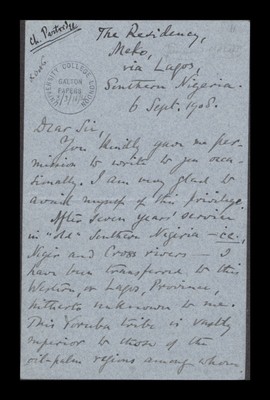 Ch. Partridge
UNIVERSITY COLLEGE LONDON
GALTON
PAPERS
The Residency,
Meko,
via Lagos,
Southern Nigeria.
6 Sept. 1908.
Dear Sir,
You kindly gave me per-
mission to write to you occa-
sionally. I am very glad to
avail myself of this privilege.
After seven years' service
in "old" Southern Nigeria – i.e.,
Niger and Cross rivers – I
have been transferred to this
Western, or Lagos, Province,
hitherto unknown to me.
This Yoruba tribe is vastly
superior to those of the
oil-palm regions among whom